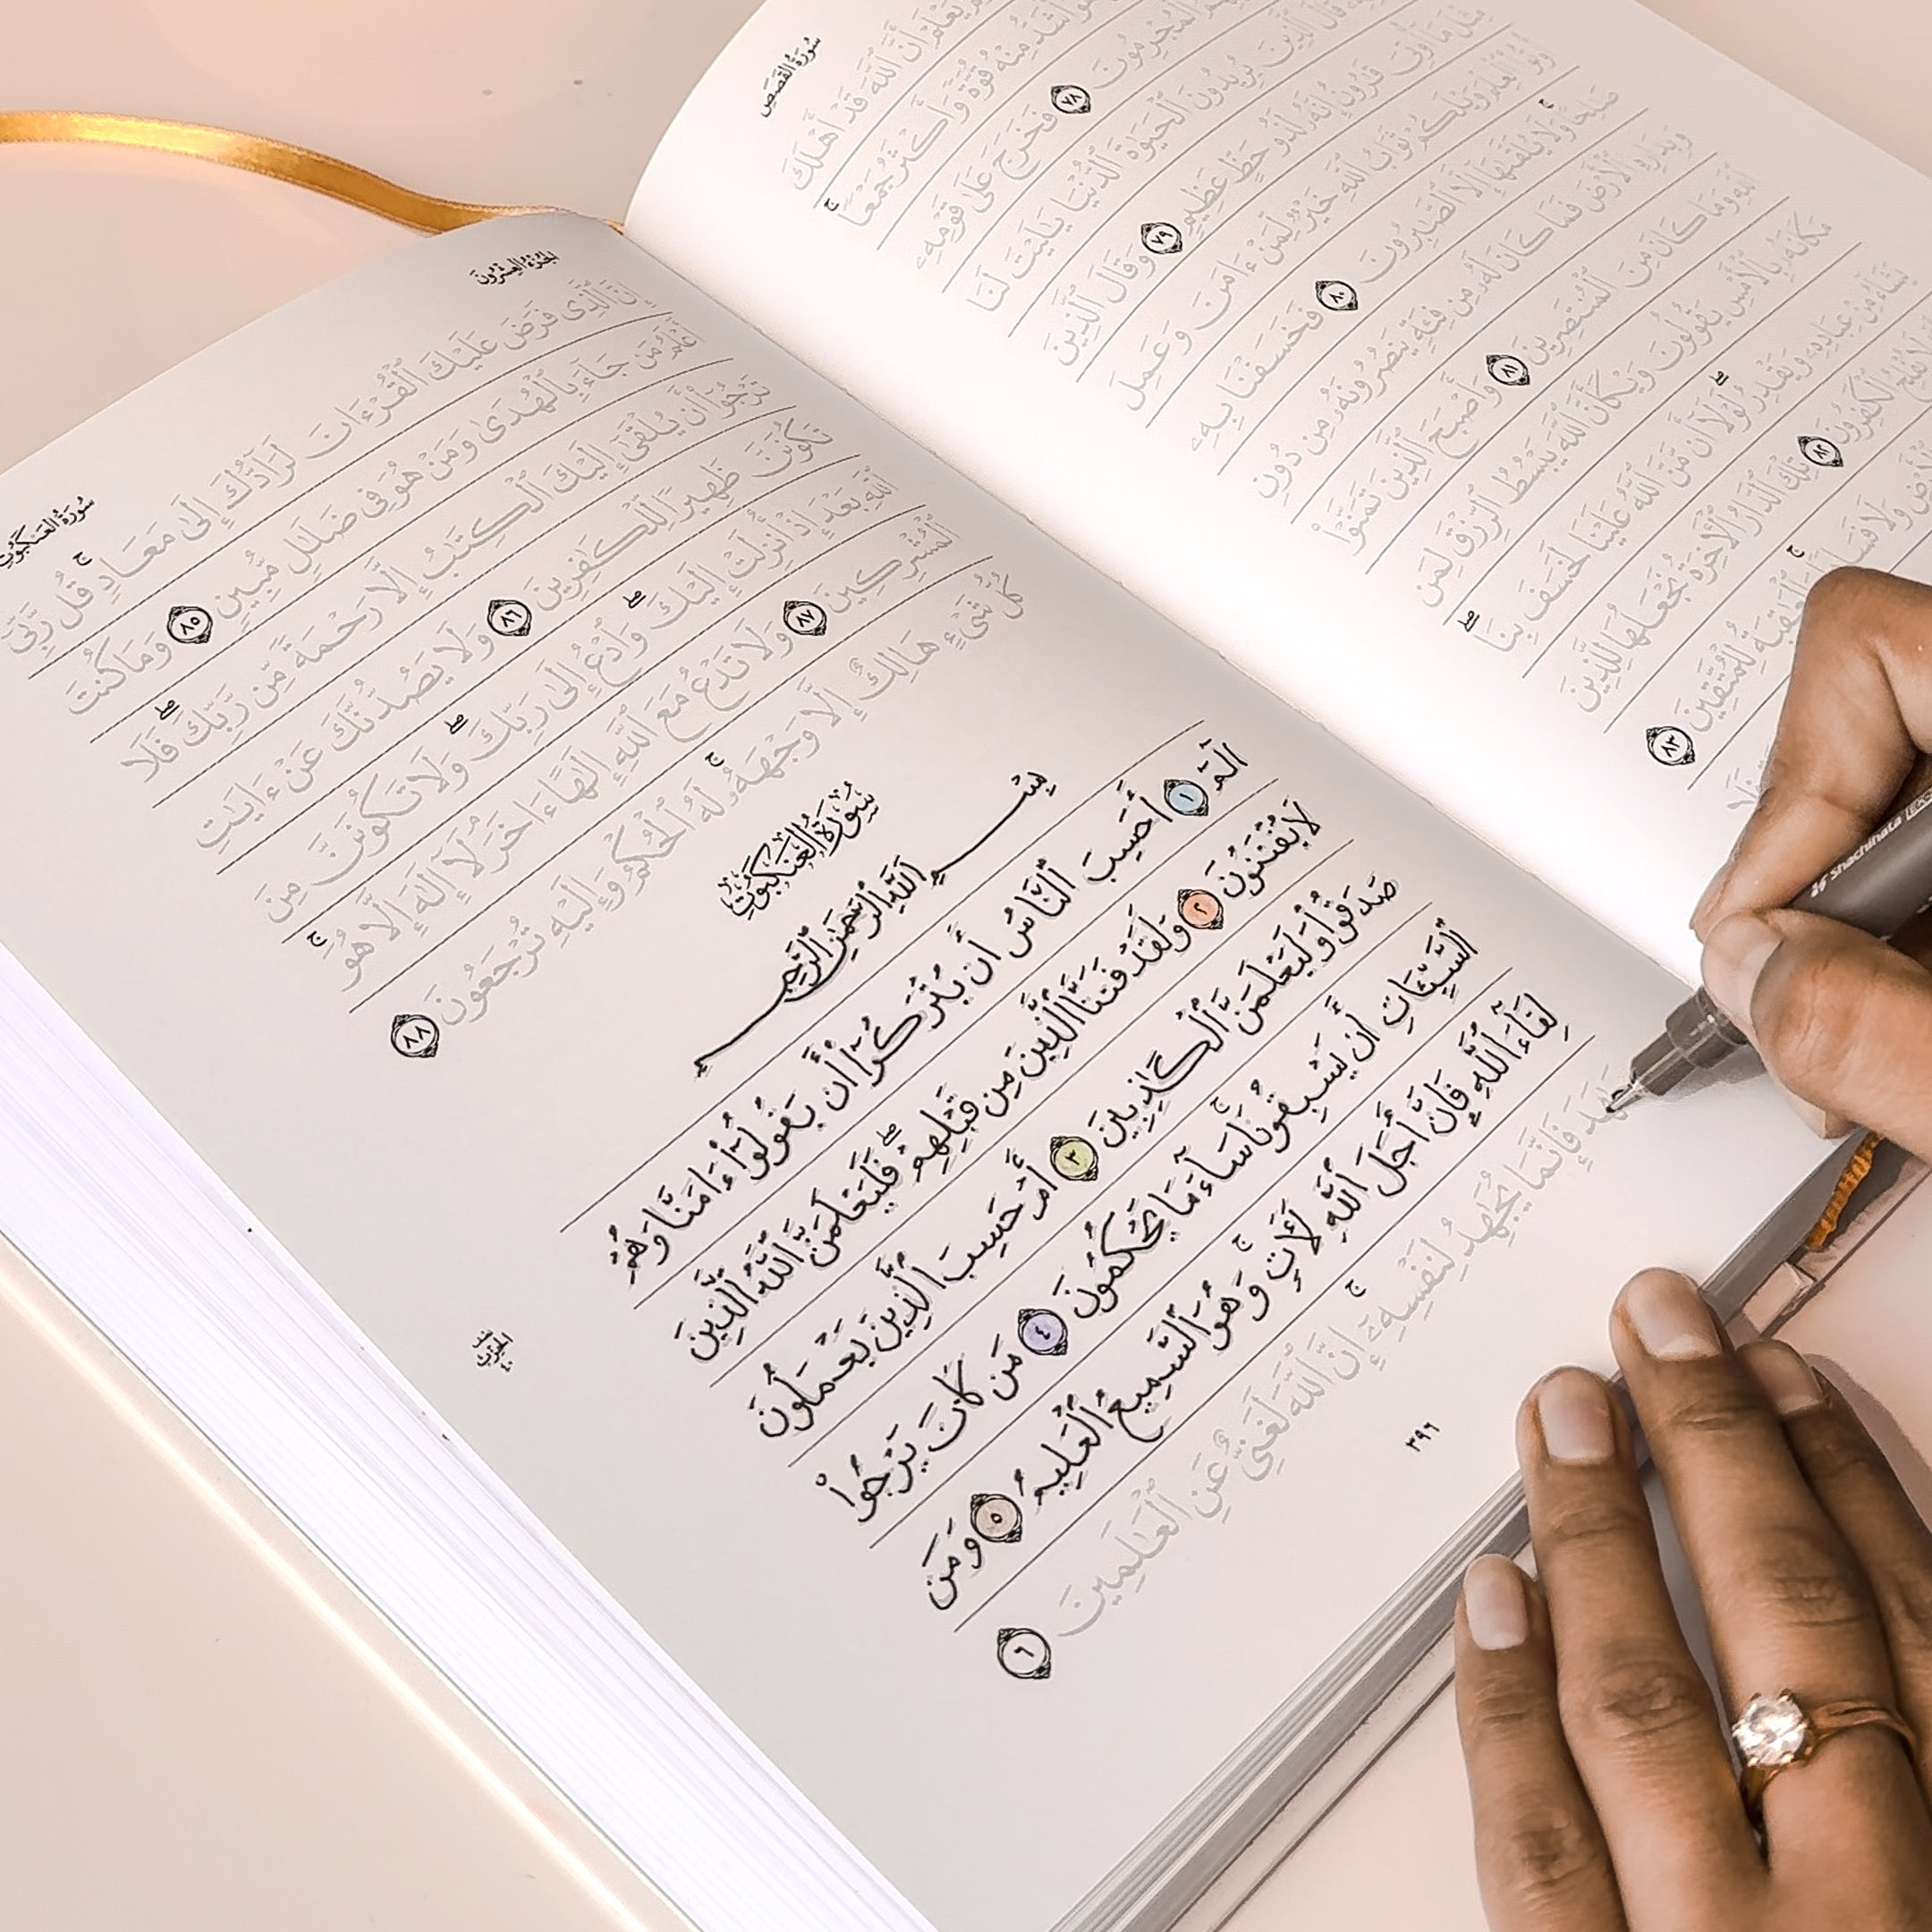 سُورَةُ القَصَصِ
قَدْ أَهْلَكَ
وَأَكْثَرُ جَمْعًا ۚ
ٱلْمُجْرِمُونَ ٧٨ فَخَرَجَ عَلَىٰ قَوْمِهِۦ
قَالَ ٱلَّذِينَ يُرِيدُونَ ٱلْحَيَوٰةَ ٱلدُّنْيَا يَٰلَيْتَ لَنَا
مِثْلَ مَآ أُوتِىَ قَٰرُونُ إِنَّهُۥ لَذُو حَظٍّ عَظِيمٍ ٧٩ وَقَالَ ٱلَّذِينَ
أُوتُوا۟ ٱلْعِلْمَ وَيْلَكُمْ ثَوَابُ ٱللَّهِ خَيْرٌ لِّمَنْ ءَامَنَ وَعَمِلَ
صَٰلِحًا ۚ وَلَا يُلَقَّىٰهَآ إِلَّا ٱلصَّٰبِرُونَ ٨٠ فَخَسَفْنَا بِهِۦ
وَبِدَارِهِ ٱلْأَرْضَ فَمَا كَانَ لَهُۥ مِن فِئَةٍ يَنصُرُونَهُۥ مِن دُونِ
ٱللَّهِ وَمَا كَانَ مِنَ ٱلْمُنتَصِرِينَ ٨١ وَأَصْبَحَ ٱلَّذِينَ تَمَنَّوْا۟
مَكَانَهُۥ بِٱلْأَمْسِ يَقُولُونَ وَيْكَأَنَّ ٱللَّهَ يَبْسُطُ ٱلرِّزْقَ لِمَن
يَشَآءُ مِنْ عِبَادِهِۦ وَيَقْدِرُ ۖ لَوْلَآ أَن مَّنَّ ٱللَّهُ عَلَيْنَا لَخَسَفَ بِنَا ۖ
ٱلْكَٰفِرُونَ ٨٢ تِلْكَ ٱلدَّارُ ٱلْءَاخِرَةُ نَجْعَلُهَا لِلَّذِينَ
وَلَا فَسَادًا ۚ وَٱلْعَٰقِبَةُ لِلْمُتَّقِينَ ٨٣
الجُزْءُ العِشْرُونَ
سُورَةُ العَنكَبُوتِ
إِنَّ ٱلَّذِى فَرَضَ عَلَيْكَ ٱلْقُرْءَانَ لَرَآدُّكَ إِلَىٰ مَعَادٍ ۚ قُل رَّبِّىٓ
أَعْلَمُ مَن جَآءَ بِٱلْهُدَىٰ وَمَنْ هُوَ فِى ضَلَٰلٍ مُّبِينٍ ٨٥ وَمَا كُنتَ
تَرْجُوٓا۟ أَن يُلْقَىٰٓ إِلَيْكَ ٱلْكِتَٰبُ إِلَّا رَحْمَةً مِّن رَّبِّكَ ۖ فَلَا
تَكُونَنَّ ظَهِيرًا لِّلْكَٰفِرِينَ ٨٦ وَلَا يَصُدُّنَّكَ عَنْ ءَايَٰتِ
ٱللَّهِ بَعْدَ إِذْ أُنزِلَتْ إِلَيْكَ ۖ وَٱدْعُ إِلَىٰ رَبِّكَ ۖ وَلَا تَكُونَنَّ مِنَ
ٱلْمُشْرِكِينَ ٨٧ وَلَا تَدْعُ مَعَ ٱللَّهِ إِلَٰهًا ءَاخَرَ ۘ لَآ إِلَٰهَ إِلَّا هُوَ ۚ
كُلُّ شَىْءٍ هَالِكٌ إِلَّا وَجْهَهُۥ ۚ لَهُ ٱلْحُكْمُ وَإِلَيْهِ تُرْجَعُونَ ٨٨
سُورَةُ العَنكَبُوتِ
بِسْمِ ٱللَّهِ ٱلرَّحْمَٰنِ ٱلرَّحِيمِ
الٓمٓ ١ أَحَسِبَ ٱلنَّاسُ أَن يُتْرَكُوٓا۟ أَن يَقُولُوٓا۟ ءَامَنَّا وَهُمْ
لَا يُفْتَنُونَ ٢ وَلَقَدْ فَتَنَّا ٱلَّذِينَ مِن قَبْلِهِمْ ۖ فَلَيَعْلَمَنَّ ٱللَّهُ ٱلَّذِينَ
صَدَقُوا۟ وَلَيَعْلَمَنَّ ٱلْكَٰذِبِينَ ٣ أَمْ حَسِبَ ٱلَّذِينَ يَعْمَلُونَ
ٱلسَّيِّـَٔاتِ أَن يَسْبِقُونَا ۚ سَآءَ مَا يَحْكُمُونَ ٤ مَن كَانَ يَرْجُوا۟
لِقَآءَ ٱللَّهِ فَإِنَّ أَجَلَ ٱللَّهِ لَءَاتٍ ۚ وَهُوَ ٱلسَّمِيعُ ٱلْعَلِيمُ ٥ وَمَن
جَٰهَدَ فَإِنَّمَا يُجَٰهِدُ لِنَفْسِهِۦٓ ۚ إِنَّ ٱللَّهَ لَغَنِىٌّ عَنِ ٱلْعَٰلَمِينَ ٦
٣٩٦
Shachihata